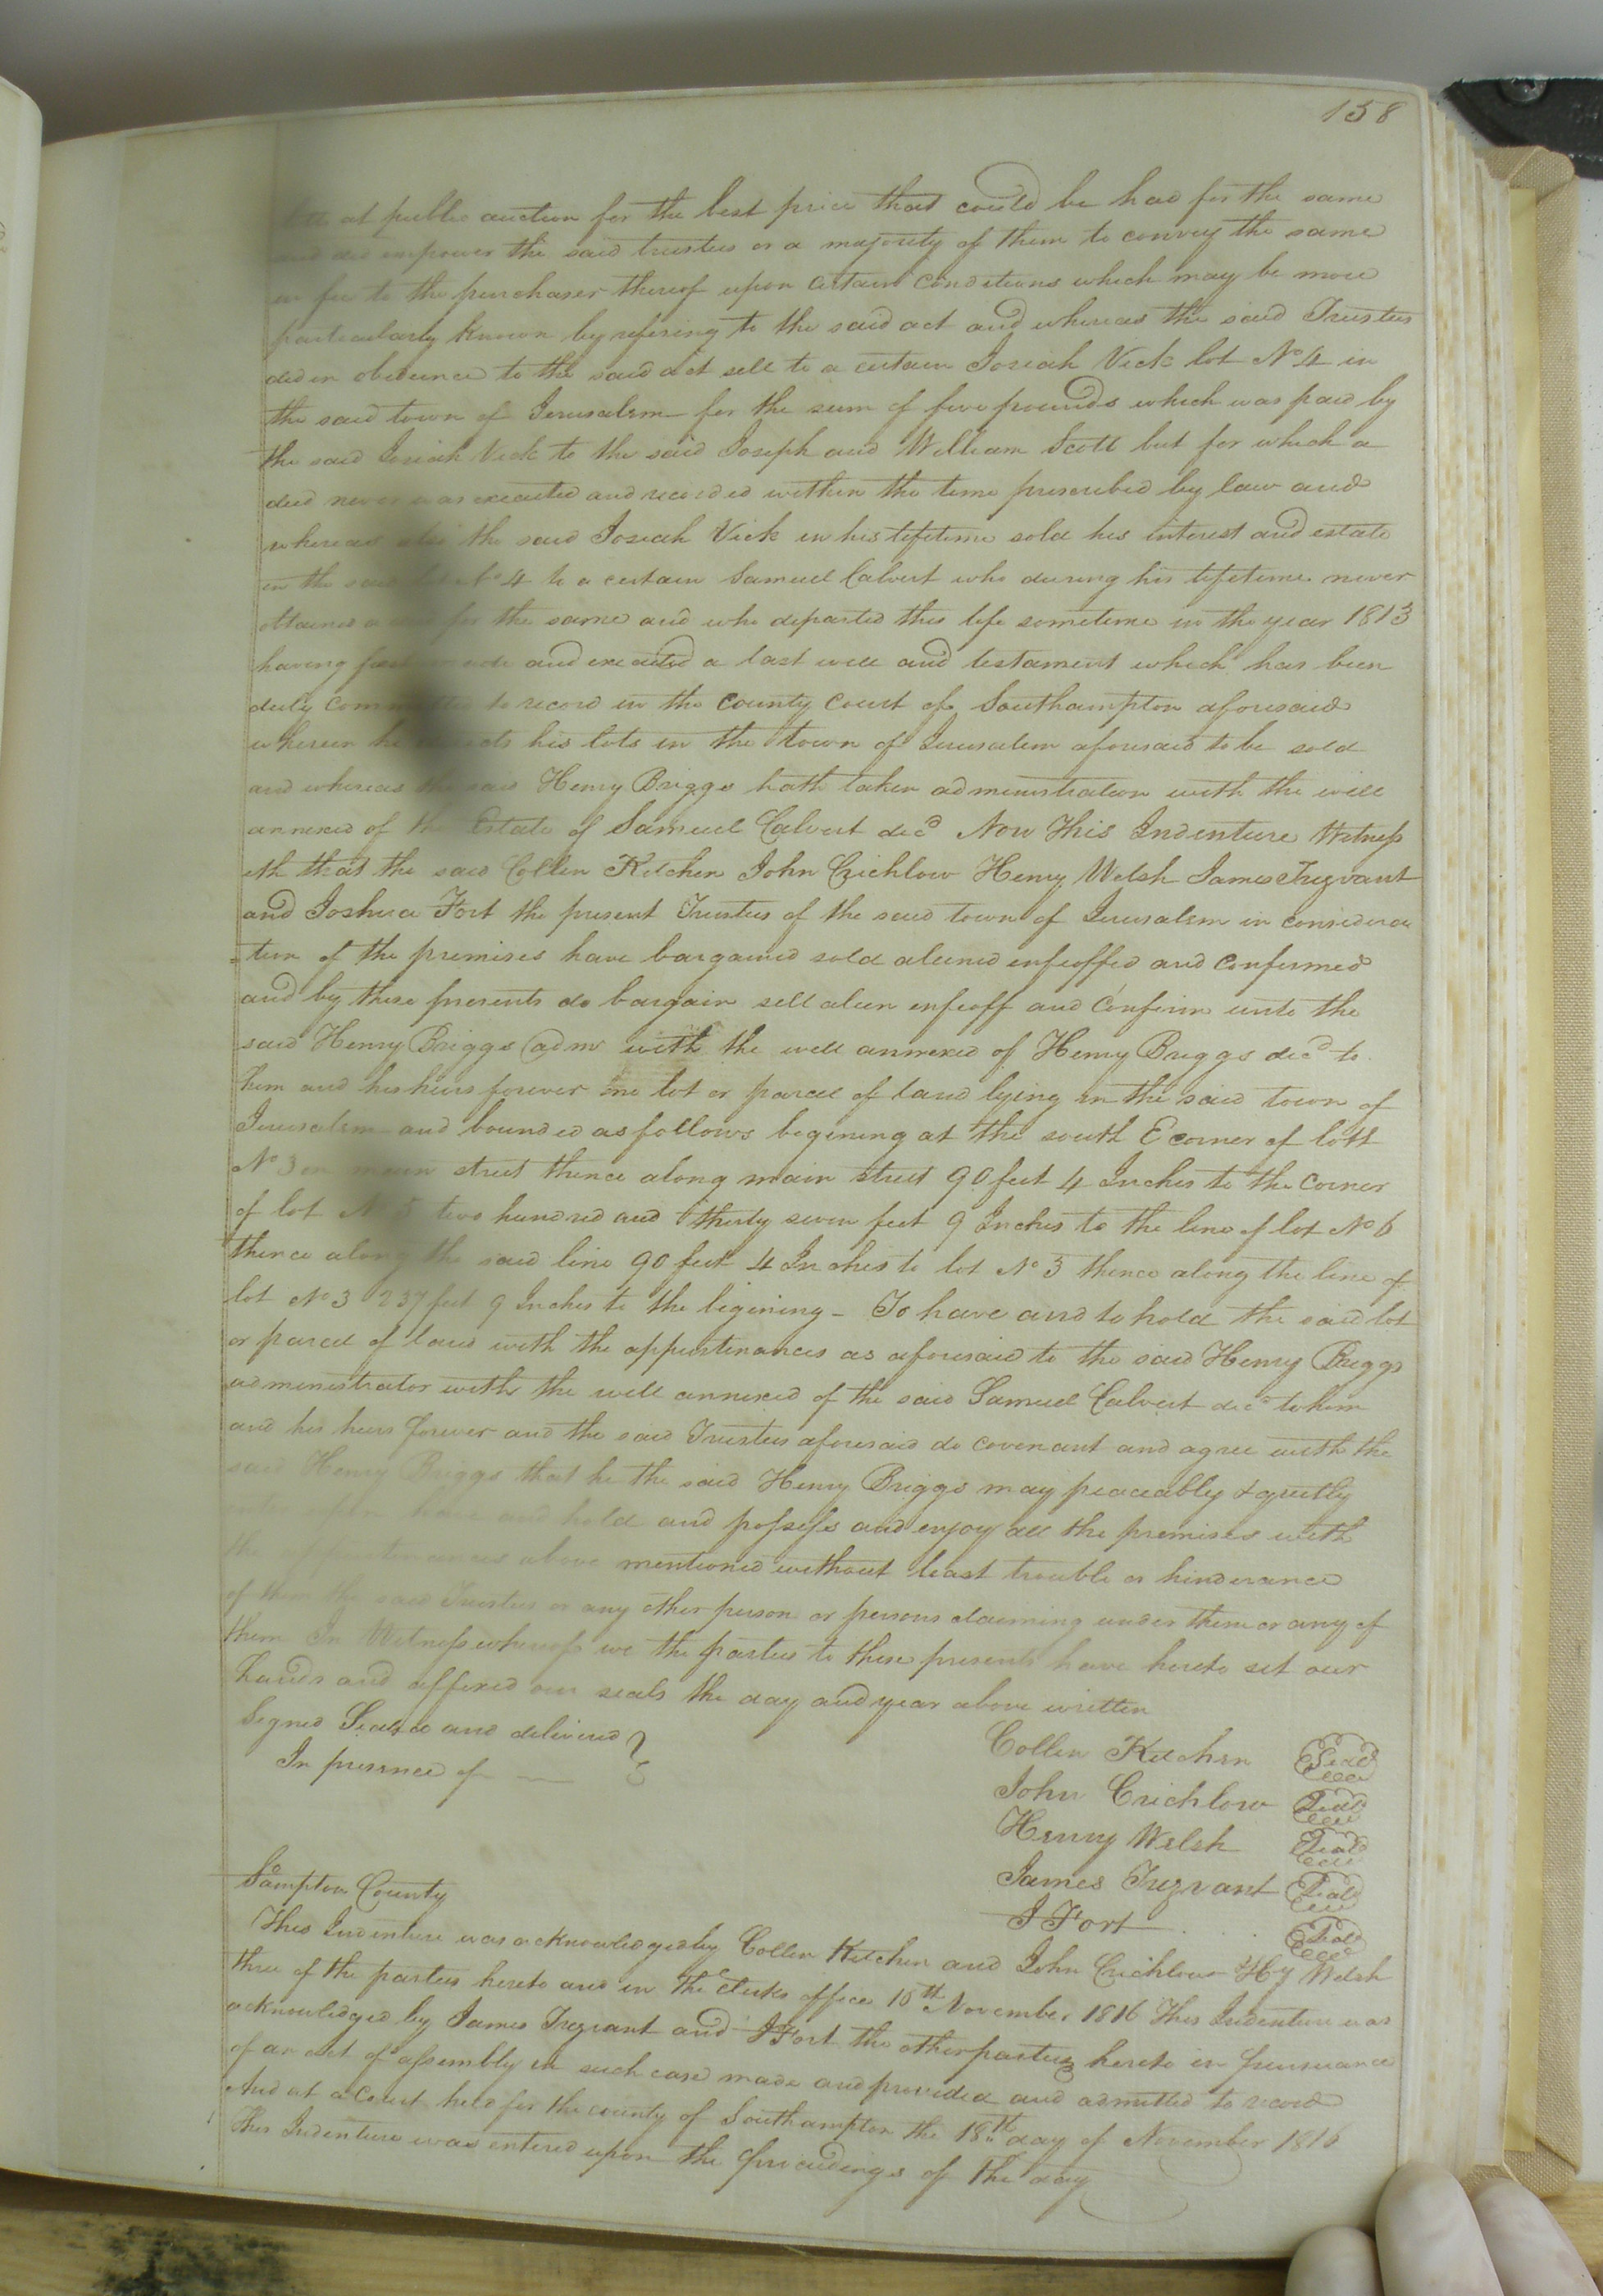 158
at public auction for the best price that could be had for the same
and did empower the said trustees or a majority of them to convey the same
in fee to the purchaser thereof upon certain conditions which may be more
particularly known by refering to the said act and whereas the said Trustees
did in obedience to the said act sell to a certain Josiah Vick lot No 4 in
the said town of Jerusalem for the sum of five pounds which was paid by
the said Josiah Vick to the said Joseph and William Scott but for which a
deed never was executed and recorded within the time prescribed by law and
whereas also the said Josiah Vick in his lifetime sold his interest and estate
in the said lot No 4 to a certain Samuel Calvert who during his lifetime never
obtained a deed for the same and who departed this life sometime in the year 1813
having first made and executed a last will and testament which has been
duly committed to record in the county court of Southampton aforesaid
wherein he directs his lots in the town of Jerusalem aforesaid to be sold
and whereas the said Henry Briggs hath taken administration with the will
annexed of the Estate of Samuel Calvert decd Now This Indenture Witness
eth that the said Collin Kitchen John Crichlow Henry Welsh James Trezvant
and Joshua Fort the present Trustees of the said town of Jerusalem in considera
=tion of the premises have bargained sold aliened enfeoffed and confirmed
and by these presents do bargain sell alien enfeoff and Confirm unto the
said Henry Briggs adms with the will annexed of Henry Briggs decd to
him and his heirs forever one lot or parcel of land lying in the said town of
Jerusalem and bounded as follows begining at the south E corner of lott
No 3 on main street thence along main street 90 feet 4 Inches to the Corner
of lot No 5 two hundred and thirty seven feet 9 Inches to the line of lot No 6
thence along the said line 90 feet 4 Inches to lot No 3 thence along the line of
lot No 3 237 feet 9 Inches to the begining - To have and to hold the said lot
or parcel of land with the appurtenances as aforesaid to the said Henry Briggs
administrator with the will annexed of the said Samuel Calvert decd to him
and his heirs forever and the said Trustees aforesaid do covenant and agree with the
said Henry Briggs that he the said Henry Briggs may peaceably & quietly
have and hold and possess and enjoy all the premises with
the appurtenances above mentioned without least trouble or hinderance
of them the said Trustees or any other person or persons claiming under them or any of
them In Witness whereof we the parties to these presents have hereto set our
hands and affixed our seals the day and year above written
Signed Sealed and delivered
In presence of
Collin Kitchen Seal
John Crichlow Seal
Henry Welsh Seal
James Trezvant Seal
J Fort Seal
Sampton County
This Indenture was acknowledged by Collin Kitchen and John Crichlow Hy Welsh
three of the parties hereto and in the Clerks office 16th November 1816 This Indenture was
acknowledged by James Trezvant and J Fort the other parties hereto in pursuance
of an act of assembly in such case made and provided and admitted to record
And at a Court held for the county of Southampton the 18th day of November 1816
This Indenture was entered upon the proceedings of the day